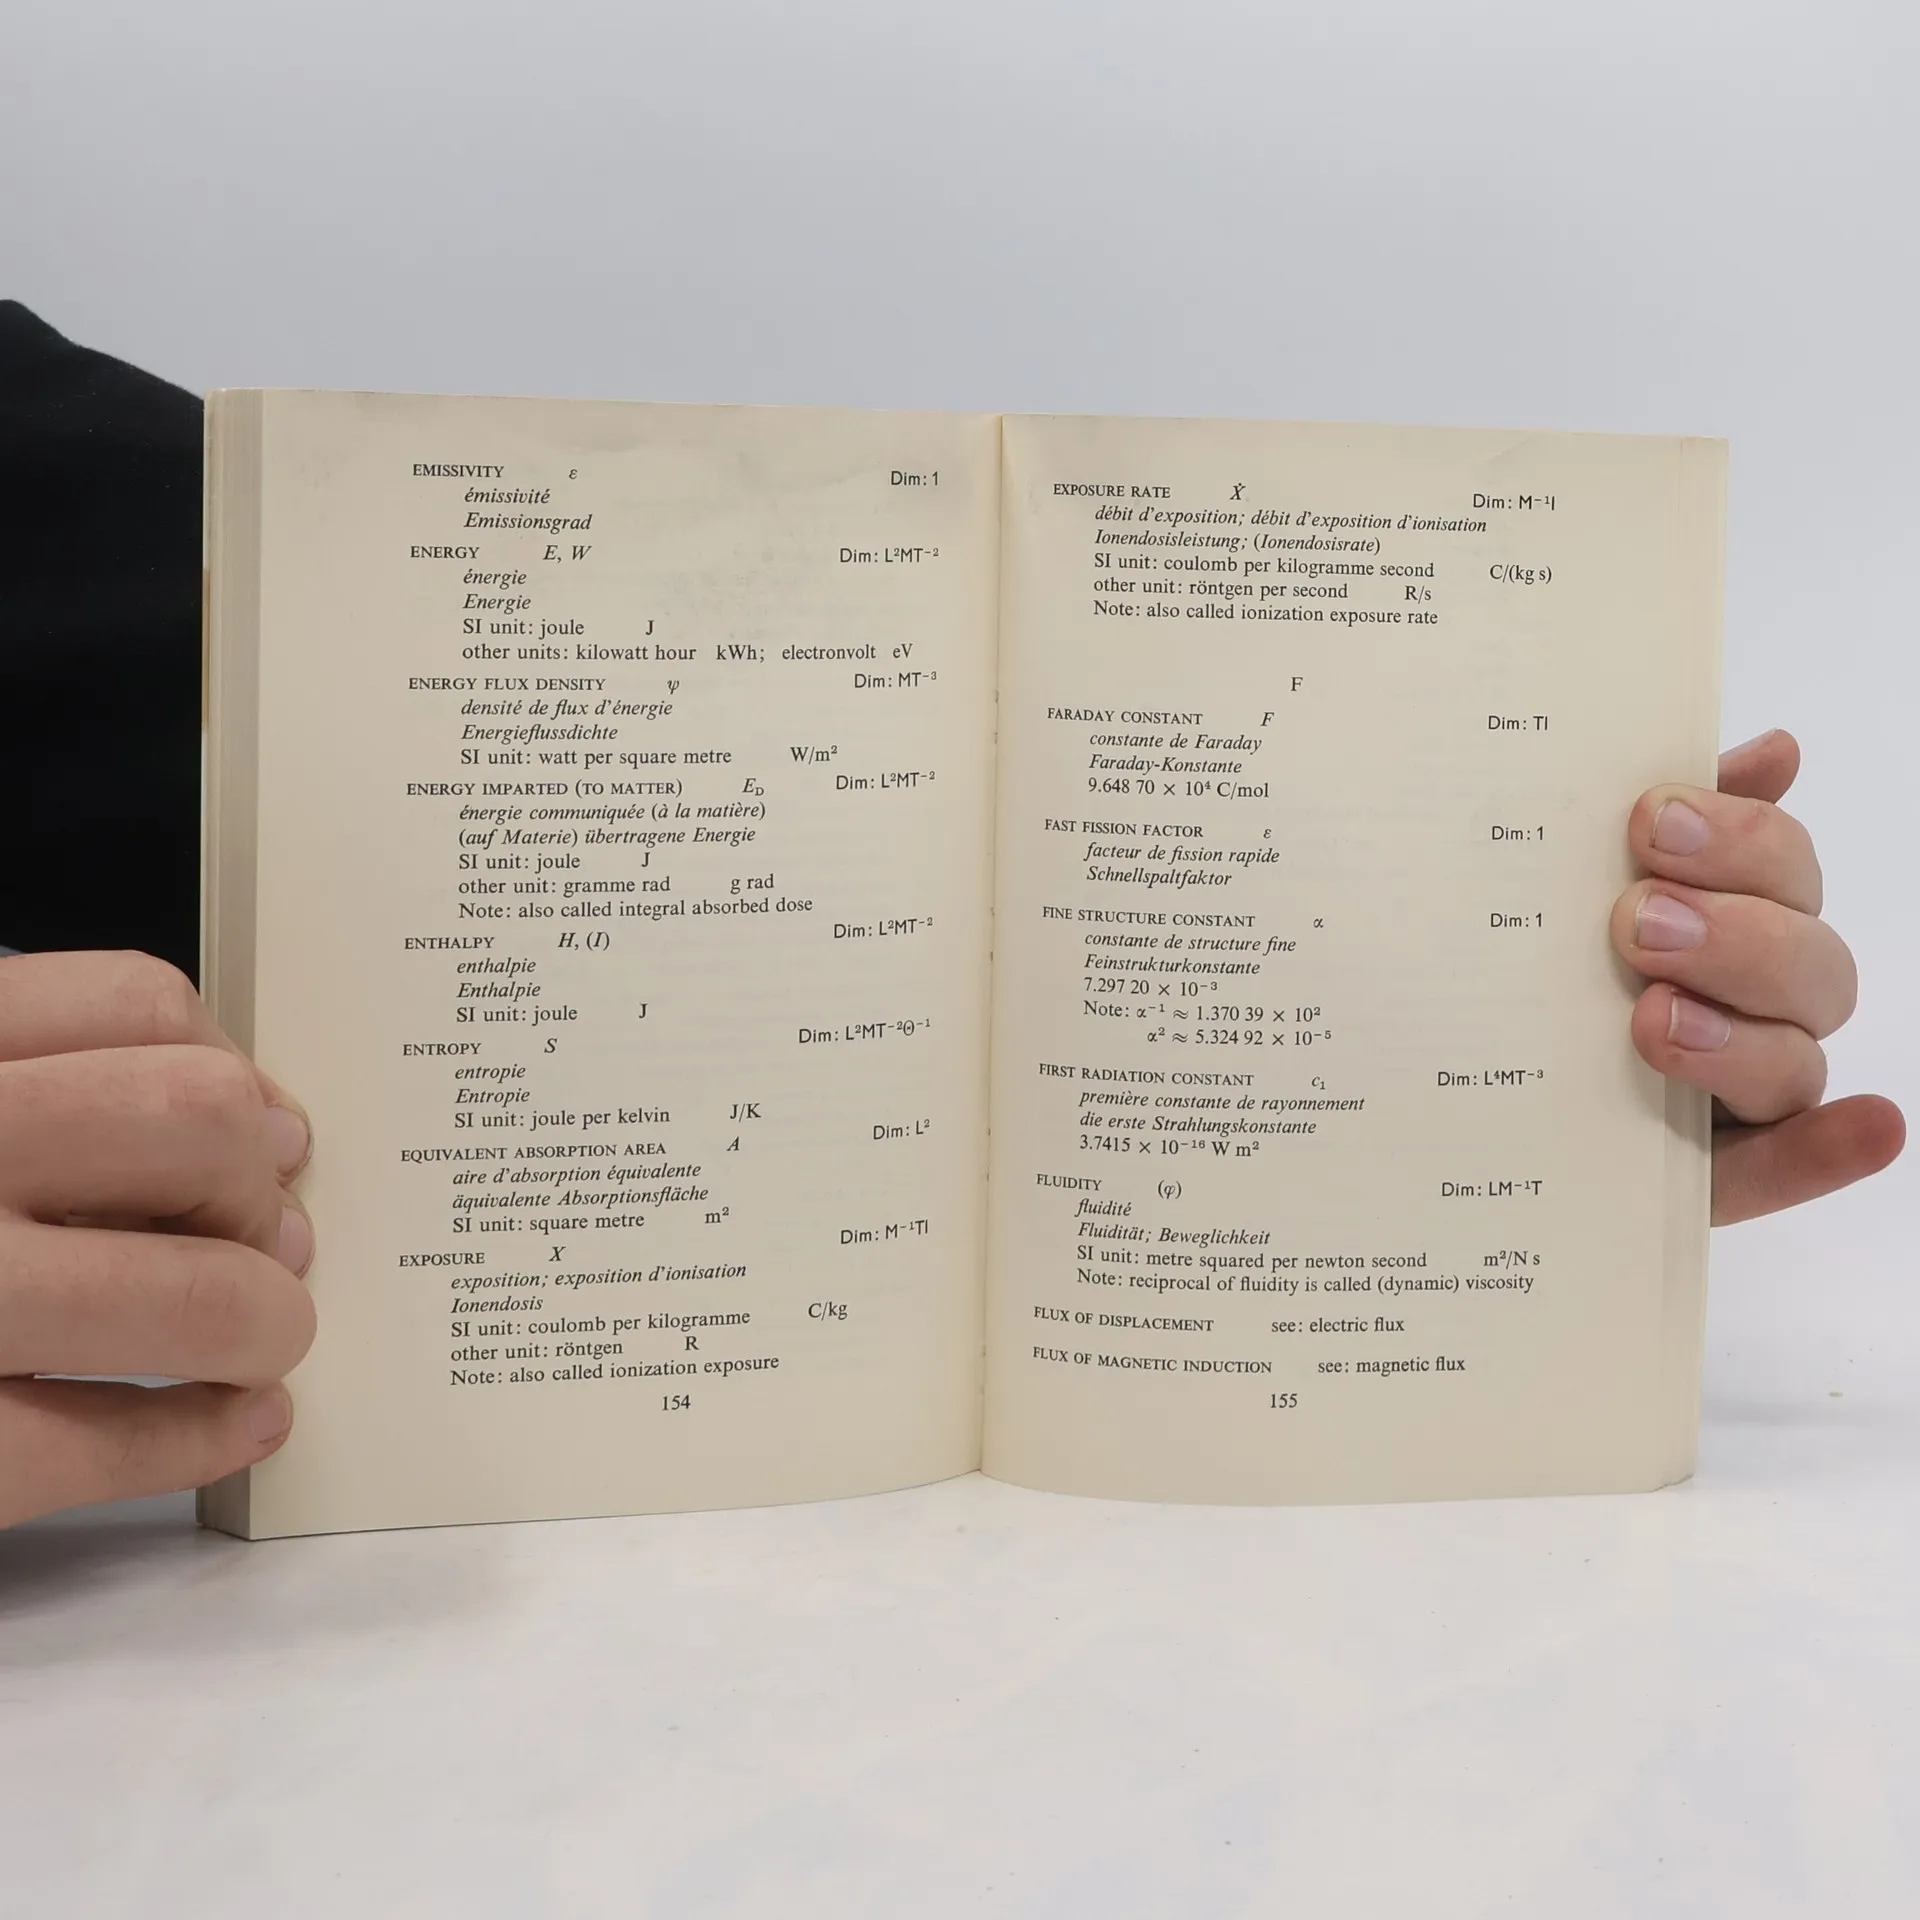 EMISSIVITY ε Dim: 1
émissivité
Emissionsgrad
ENERGY E, W Dim: L²MT⁻²
énergie
Energie
SI unit: joule J
other units: kilowatt hour kWh; electronvolt eV
ENERGY FLUX DENSITY ψ Dim: MT⁻³
densité de flux d'énergie
Energieflussdichte
SI unit: watt per square metre W/m²
ENERGY IMPARTED (TO MATTER) E_D Dim: L²MT⁻²
énergie communiquée (à la matière)
(auf Materie) übertragene Energie
SI unit: joule J
other unit: gramme rad g rad
Note: also called integral absorbed dose
ENTHALPY H, (I) Dim: L²MT⁻²
enthalpie
Enthalpie
SI unit: joule J
ENTROPY S Dim: L²MT⁻²Θ⁻¹
entropie
Entropie
SI unit: joule per kelvin J/K
EQUIVALENT ABSORPTION AREA A Dim: L²
aire d'absorption équivalente
äquivalente Absorptionsfläche
SI unit: square metre m²
EXPOSURE X Dim: M⁻¹TI
exposition; exposition d'ionisation
Ionendosis
SI unit: coulomb per kilogramme C/kg
other unit: röntgen R
Note: also called ionization exposure
154
EXPOSURE RATE Ẋ Dim: M⁻¹I
débit d'exposition; débit d'exposition d'ionisation
Ionendosisleistung; (Ionendosisrate)
SI unit: coulomb per kilogramme second C/(kg s)
other unit: röntgen per second R/s
Note: also called ionization exposure rate
F
FARADAY CONSTANT F Dim: TI
constante de Faraday
Faraday-Konstante
9.648 70 × 10⁴ C/mol
FAST FISSION FACTOR ε Dim: 1
facteur de fission rapide
Schnellspaltfaktor
FINE STRUCTURE CONSTANT α Dim: 1
constante de structure fine
Feinstrukturkonstante
7.297 20 × 10⁻³
Note: α⁻¹ ≈ 1.370 39 × 10²
α² ≈ 5.324 92 × 10⁻⁵
FIRST RADIATION CONSTANT c₁ Dim: L⁴MT⁻³
première constante de rayonnement
die erste Strahlungskonstante
3.7415 × 10⁻¹⁶ W m²
FLUIDITY (φ) Dim: LM⁻¹T
fluidité
Fluidität; Beweglichkeit
SI unit: metre squared per newton second m²/N s
Note: reciprocal of fluidity is called (dynamic) viscosity
FLUX OF DISPLACEMENT see: electric flux
FLUX OF MAGNETIC INDUCTION see: magnetic flux
155